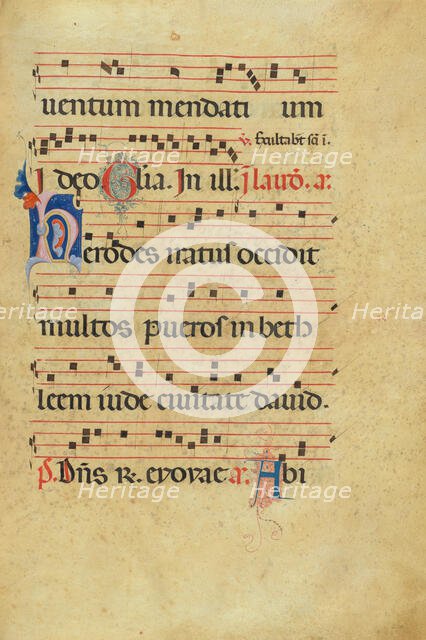 uentum mendati um
℣. Exultabt sci i.
I deo Glia. In ill. i lauð. a.
herodes iratus occidit
multos pueros in beth
leem iude ciuitate dauid.
p. Dns ℟. evovac a. Abi
Heritage Heritage
Heritage Heritage
Heritage Heritage
Heritage Heritage
©